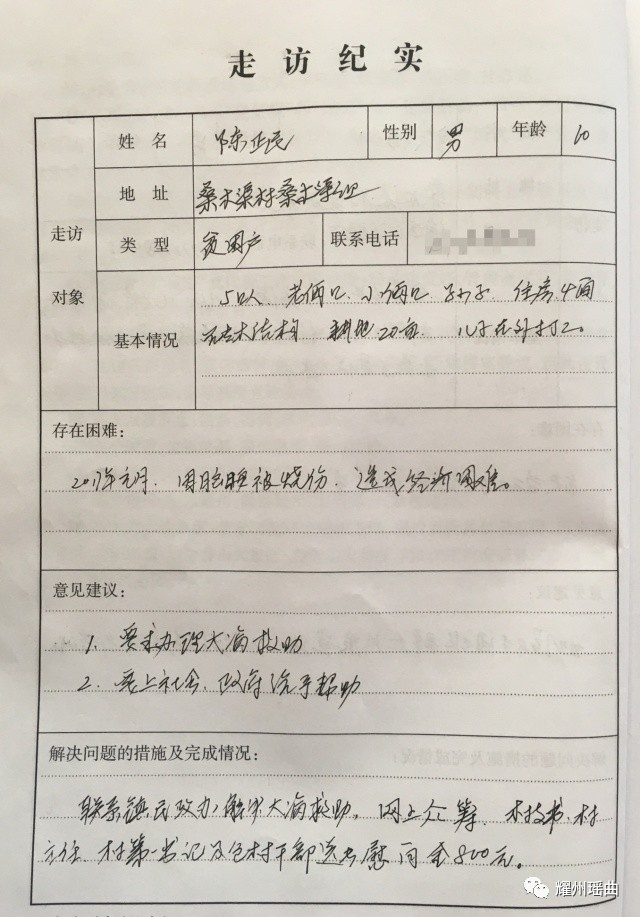 走访纪实
姓名 陈正民 性别 男 年龄 60
地址 桑木渠村桑木渠组
走访 类型 贫困户 联系电话
对象 5口人、老俩口、小俩口、孙子 住房4间
基本情况 石木结构 耕地20亩 儿子在外打工。
存在困难：
2017年元月、因 被烧伤、造成经济困难。
意见建议：
1、要求办理大病救助
2、 社会、政府给予帮助
解决问题的措施及完成情况：
联系镇民政办、解决大病救助、网上众筹、村支书、村
主任、村第一书记及包村干部送去慰问金800元。
耀州瑶曲